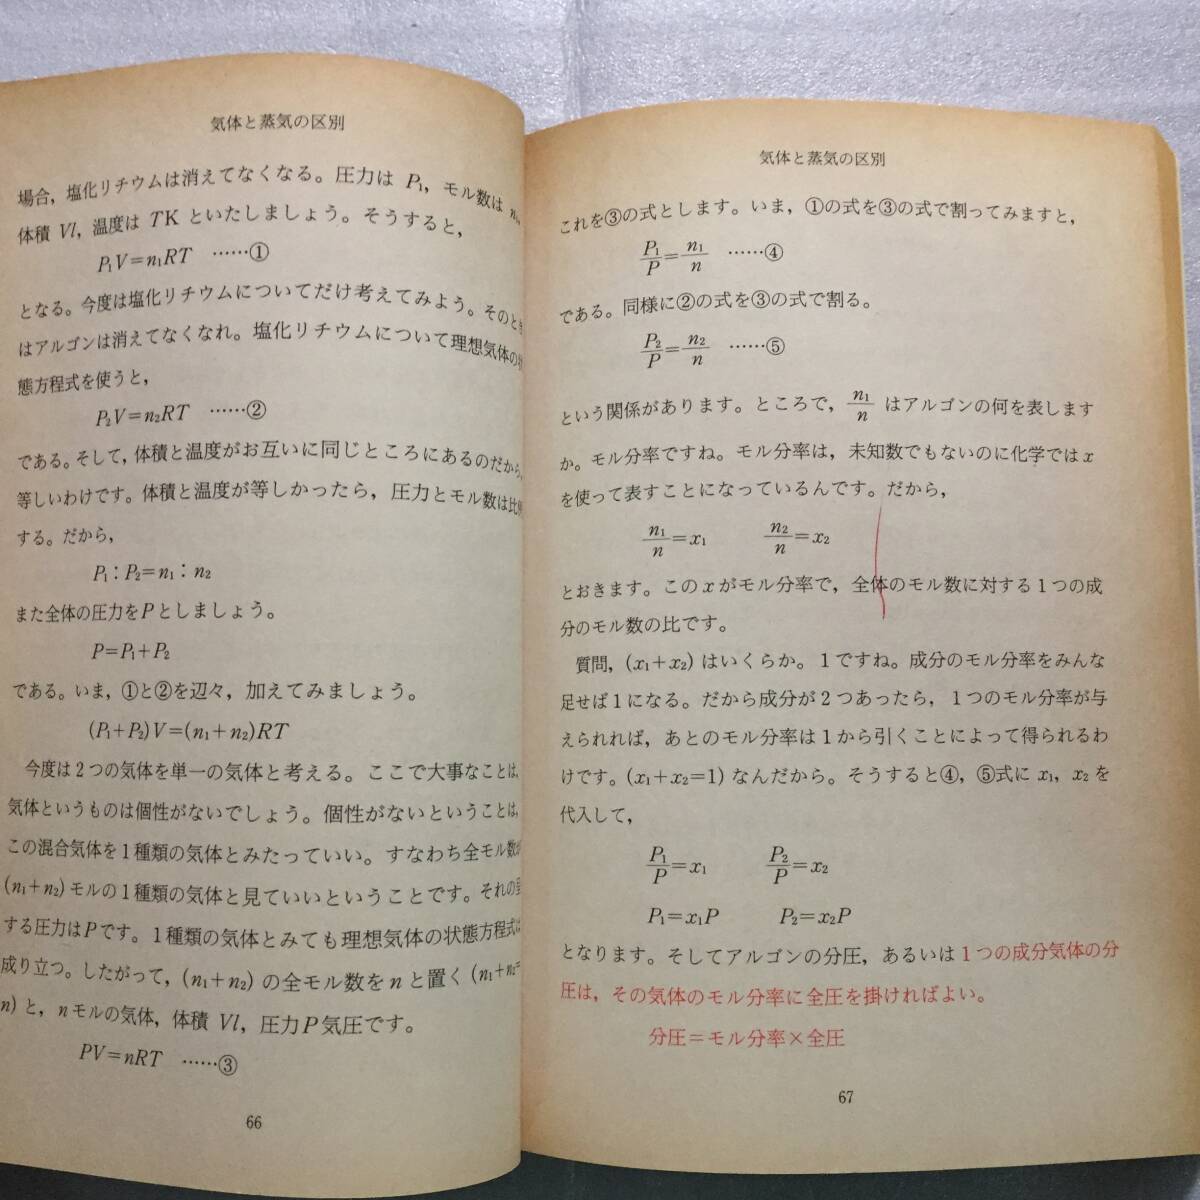 気体と蒸気の区別
場合，塩化リチウムは消えてなくなる。圧力は P₁，モル数は n₁，
体積 Vl，温度は TK といたしましょう。そうすると，
P₁V＝n₁RT ……①
となる。今度は塩化リチウムについてだけ考えてみよう。そのとき
はアルゴンは消えてなくなれ。塩化リチウムについて理想気体の状
態方程式を使うと，
P₂V＝n₂RT ……②
である。そして，体積と温度がお互いに同じところにあるのだから，
等しいわけです。体積と温度が等しかったら，圧力とモル数は比例
する。だから，
P₁：P₂＝n₁：n₂
また全体の圧力をPとしましょう。
P＝P₁＋P₂
である。いま，①と②を辺々，加えてみましょう。
(P₁＋P₂)V＝(n₁＋n₂)RT
今度は2つの気体を単一の気体と考える。ここで大事なことは，
気体というものは個性がないでしょう。個性がないということは，
この混合気体を1種類の気体とみたっていい。すなわち全モル数が
(n₁＋n₂)モルの1種類の気体と見ていいということです。それの呈
する圧力はPです。1種類の気体とみても理想気体の状態方程式は
成り立つ。したがって，(n₁＋n₂) の全モル数を n と置く (n₁＋n₂＝
n) と，n モルの気体，体積 Vl，圧力 P 気圧です。
PV＝nRT ……③
66
気体と蒸気の区別
これを③の式とします。いま，①の式を③の式で割ってみますと，
P₁/P＝n₁/n ……④
である。同様に②の式を③の式で割る。
P₂/P＝n₂/n ……⑤
という関係があります。ところで，n₁/n はアルゴンの何を表します
か。モル分率ですね。モル分率は，未知数でもないのに化学では x
を使って表すことになっているんです。だから，
n₁/n＝x₁ n₂/n＝x₂
とおきます。この x がモル分率で，全体のモル数に対する1つの成
分のモル数の比です。
質問，(x₁＋x₂) はいくらか。1ですね。成分のモル分率をみんな
足せば1になる。だから成分が2つあったら，1つのモル分率が与
えられれば，あとのモル分率は1から引くことによって得られるわ
けです。(x₁＋x₂＝1) なんだから。そうすると④，⑤式に x₁，x₂ を
代入して，
P₁/P＝x₁ P₂/P＝x₂
P₁＝x₁P P₂＝x₂P
となります。そしてアルゴンの分圧，あるいは1つの成分気体の分
圧は，その気体のモル分率に全圧を掛ければよい。
分圧＝モル分率×全圧
67